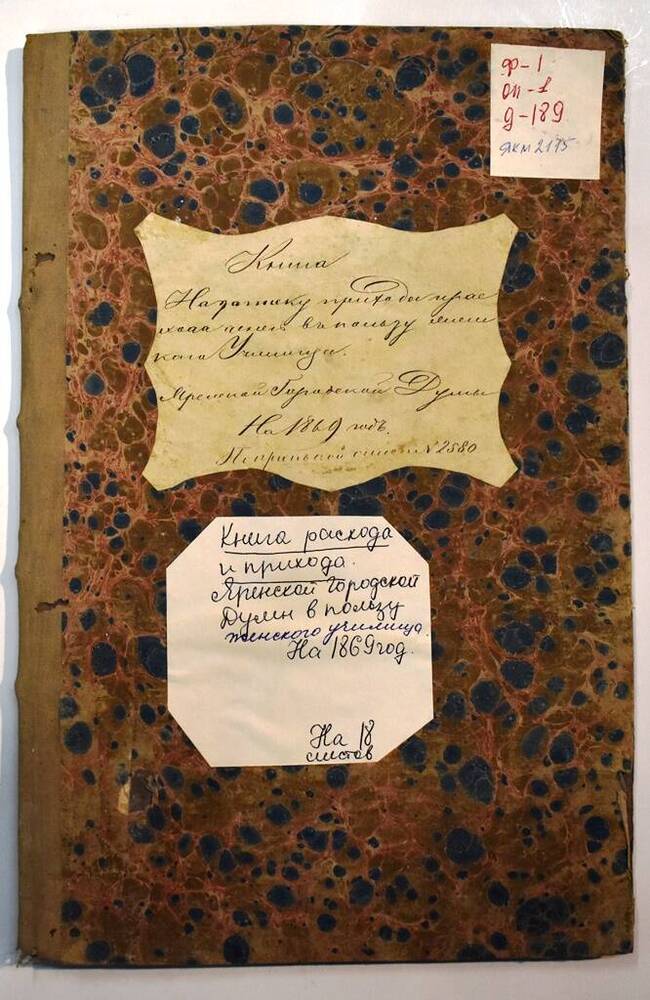 ф-1
оп-1
д-189
ЯКМ 2175
Книга
На записку прихода и рас
хода денегъ въ пользу женс
каго Училища.
Яренской Городской Думы
На 1869 годъ.
№ 2580
Книга расхода
и прихода.
Яренской городской
Думы в пользу
женского училища.
На 1869 год.
На 18
листов